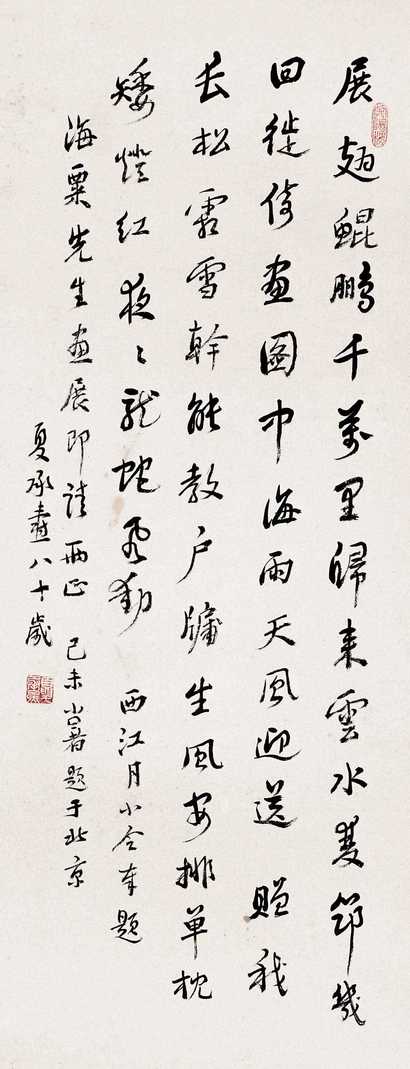 展翅鯤鵬千萬里歸來雲水雙筇幾
回徙倚畫圖中海雨天風迎送 贈我
長松霜雪幹能教戶牖生風安排單枕
矮燈紅夜〻龍蛇飛動 西江月小令奉題
海粟先生畫展即請兩正 己未小暑題于北京
夏承燾八十歲